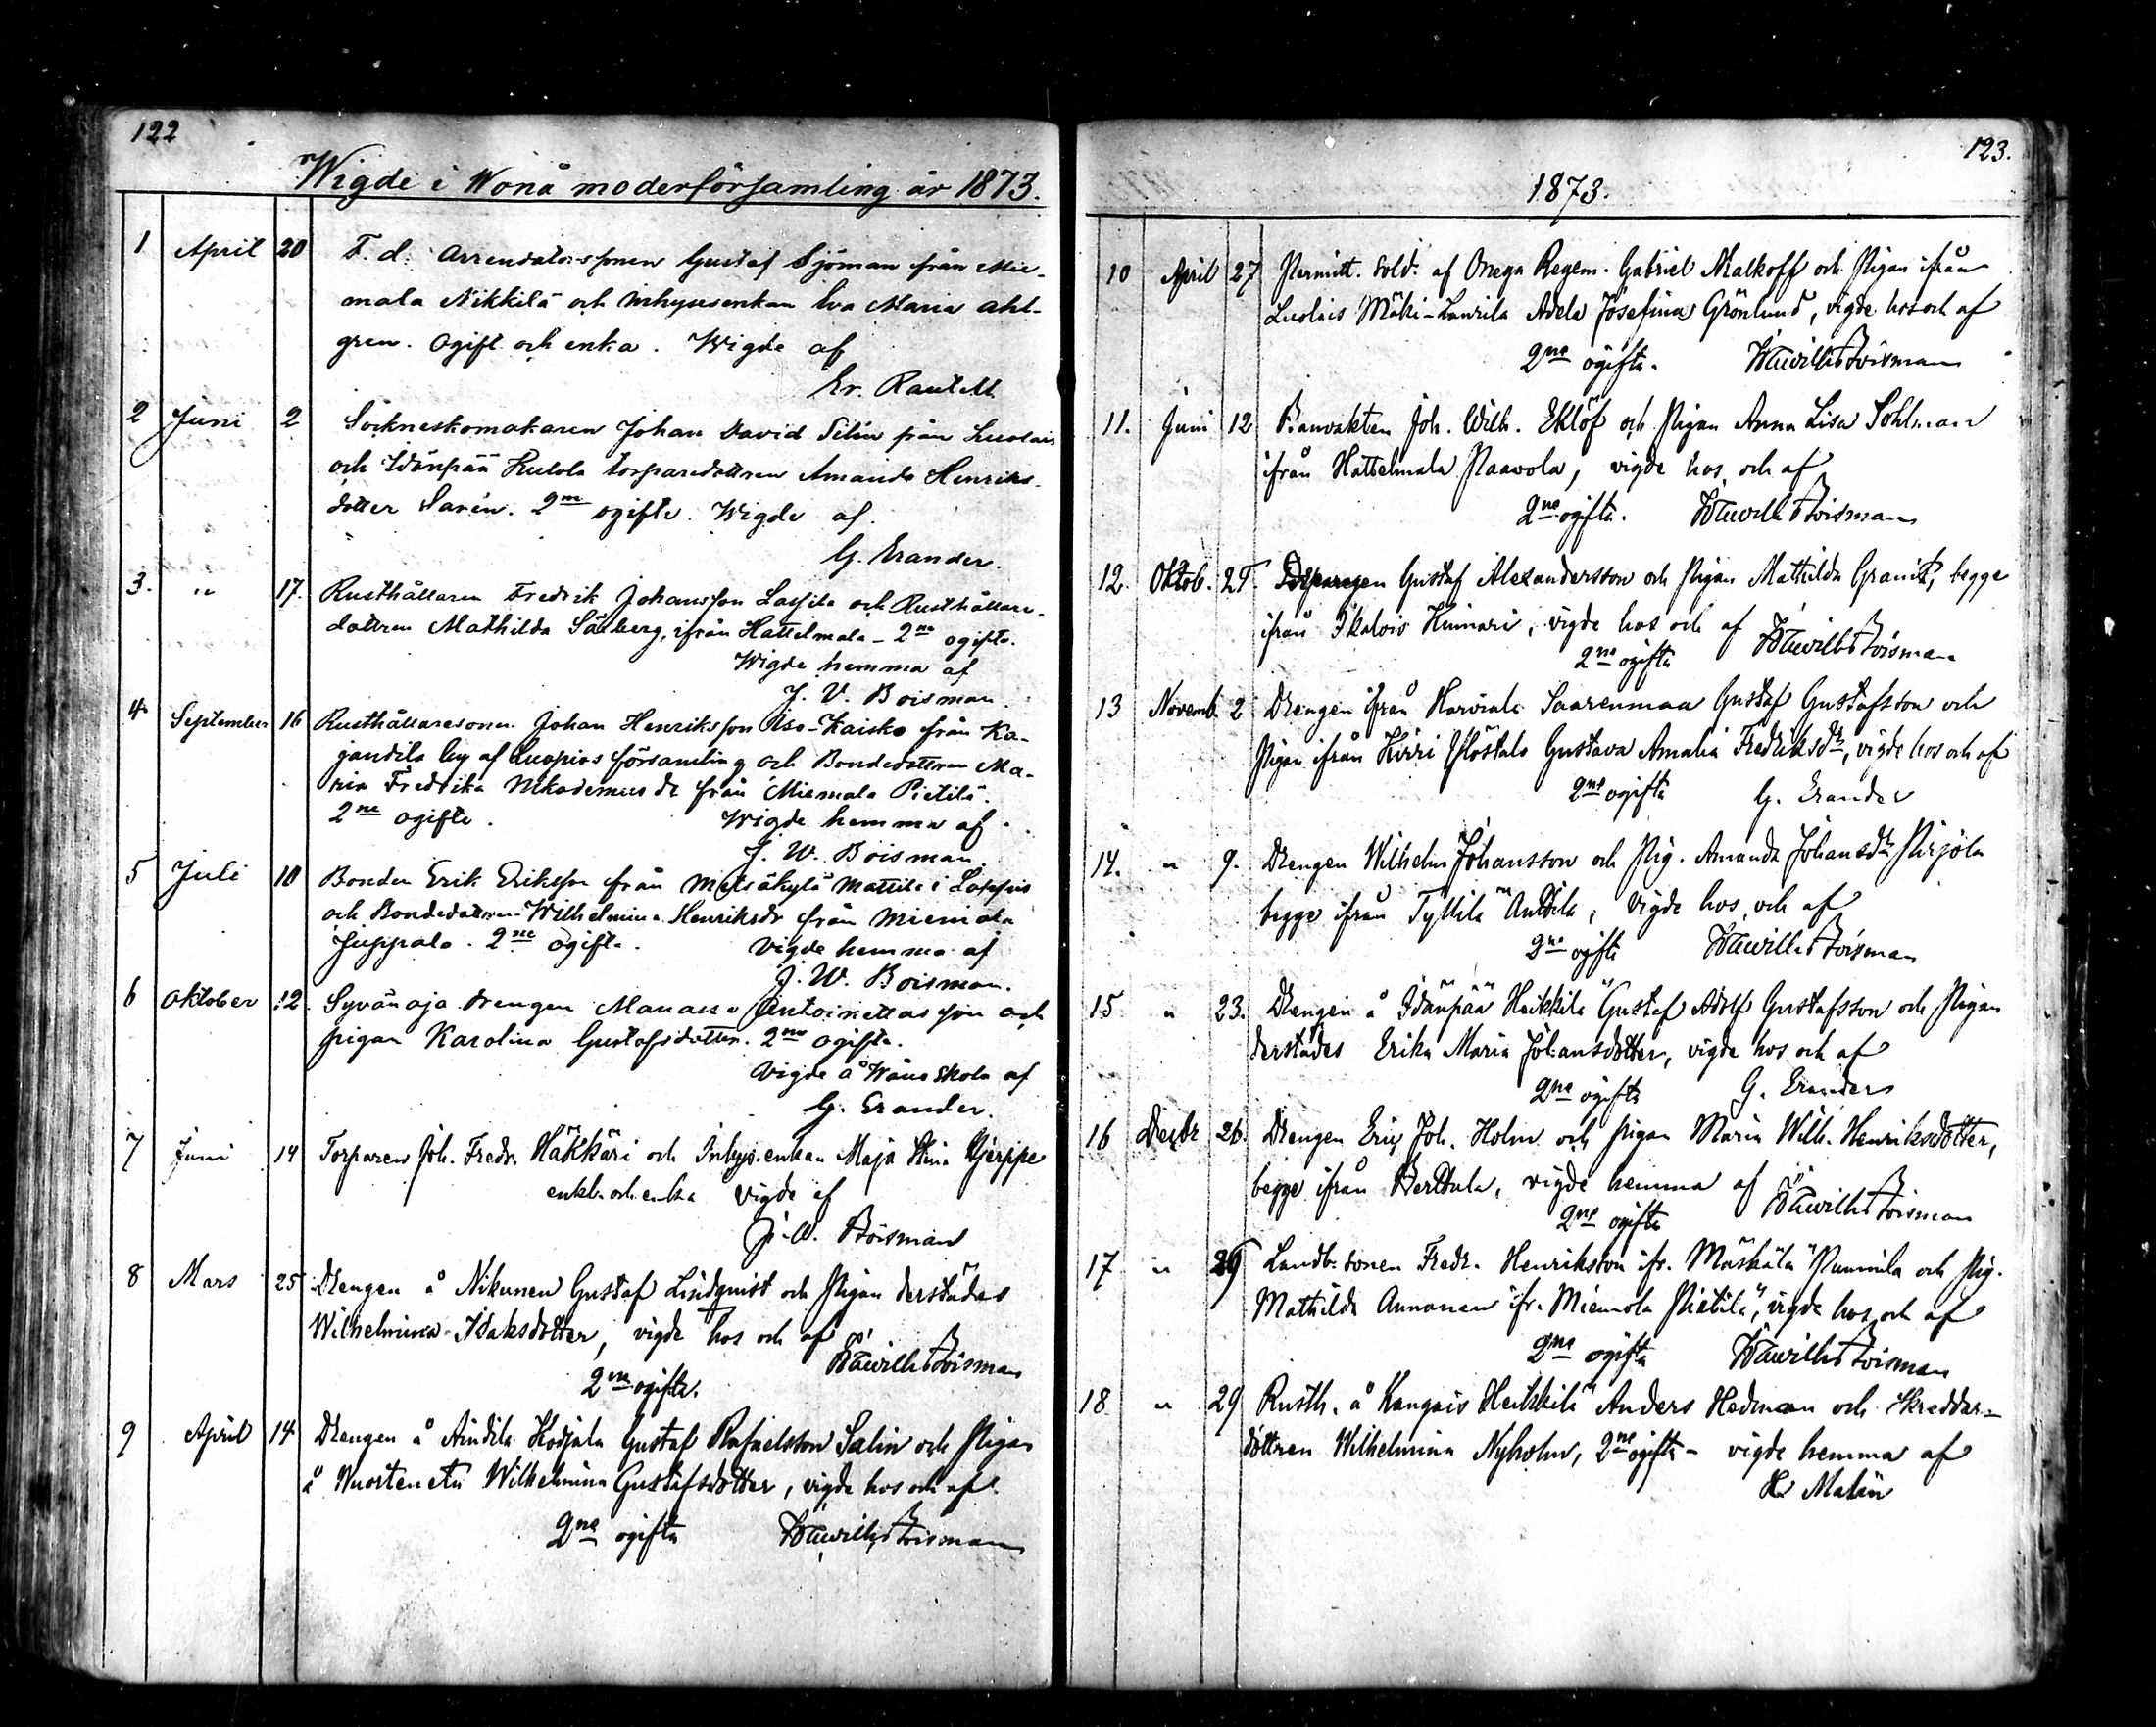 122
Wigde i Wonå moderförsamling år 1873.
1 April 20 F. d. Arrendatorssonen Gustaf Sjöman från Mie-
mala Nikkilä och Inhysesenkan Eva Maria Ahl-
gren. Ogift och enka. Wigde af
Er. Rautell
2 Juni 2 Sockneskomakaren Johan David Silén från Luolais
och Idänpää Kutola torparedottren Amanda Henriks-
dotter Sarén. 2ne ogifte. Wigde af.
G. Erander.
3. " 17. Rusthållaren Fredrik Johansson Lassila och Rusthållare-
dottren Mathilda Sälberg, ifrån Hattelmala - 2ne ogifte.
Wigde hemma af
J. V. Boisman.
4 September 16 Rusthållaresonen Johan Henriksson Iso-Kaisko från Ka-
jandila by af Luopiois församling och Bondedottren Ma-
ria Fredrika Nikodemusdr från Miemala Pietilä.
2ne ogifte. Wigde hemma af
J. W. Boisman.
5 Juli 10 Bonden Erik Eriksson från Metsäkylä Mattila i Loppis
och Bondedottren Wilhelmina Henriksdr från Miemala
Juppala. 2ne ogifte. Vigde hemma af
J. W. Boisman.
6 Oktober 12. Syvänoja drengen Manasse Antoinettasson och
pigan Karolina Gustafsdotter. 2ne ogifte.
Vigde å Wånå Skola af
G. Erander.
7 Juni 14 Torparen Joh. Fredr. Häkkäri och Inhys.enkan Maja Stina Gjerppe
enkl. och enka vigde af
J. W. Boisman
8 Mars 25 Drengen å Nikunen Gustaf Lindqvist och Pigan derstädes
Wilhelmina Isaksdotter, vigde hos och af
2ne ogifte. Boisman
9 April 14 Drengen å Äindilä Hodjala Gustaf Rafaelsson Salin och Pigan
å Wuortenetu Wilhelmina Gustafsdotter, vigde hos och af
2ne ogifta Boisman
123.
1873.
10 April 27 Permitt. Sold. af Onega Regem. Gabriel Malkoff och Pigan ifrån
Luolais Mäki-Laurila Adela Josefina Grönlund, vigde hos och af
2ne ogifta. Boisman
11. Juni 12 Banvakten Joh. Wilh. Eklöf och Pigan Anna Lisa Sohlman
ifrån Hattelmala Paavola, vigde hos och af
2ne ogifta. Boisman
12. Oktob. 27. Gustaf Alexandersson och Pigan Mathilda Granit, begge
ifrån Ikalois Kimari, vigde hos och af
2ne ogifta Boisman
13 Novemb. 2 Drengen ifrån Harviala Saarenmaa Gustaf Gustafsson och
Pigan ifrån Kirri Ylöstalo Gustava Amalia Fredriksdr, vigde hos och af
2ne ogifta G. Erander
14. " 9. Drengen Wilhelm Johansson och Pig. Amanda Johansdr Pirjola
begge ifrån Tyllilä Anttila, vigde hos och af
2ne ogifta Boisman
15 " 23. Drengen å Idänpää Heikkilä Gustaf Adolf Gustafsson och Pigan
derstädes Erika Maria Johansdotter, vigde hos och af
2ne ogifta G. Eranders
16 Decbr 26. Drengen Eriq Joh. Holm och pigan Maria Wilh. Henriksdotter,
begge ifrån Perttula, vigde hemma af
2ne ogifta Boisman
17 " 29 Landb. sonen Fredr. Henriksson ifr. Mäskälä Punnila och Pig.
Mathilda Annanen ifr. Miemola Pietilä, vigde hos och af
2ne ogifta Boisman
18 " 29 Rusth. å Kangais Heikkilä Anders Hedman och Skreddar-
dottren Wilhelmina Nyholm, 2ne ogifta - vigde hemma af
Malin